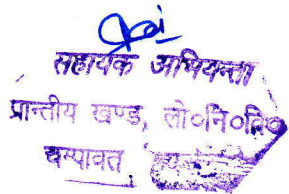 सहायक अभियन्ता
प्रान्तीय खण्ड, लो०नि०वि०
चम्पावत